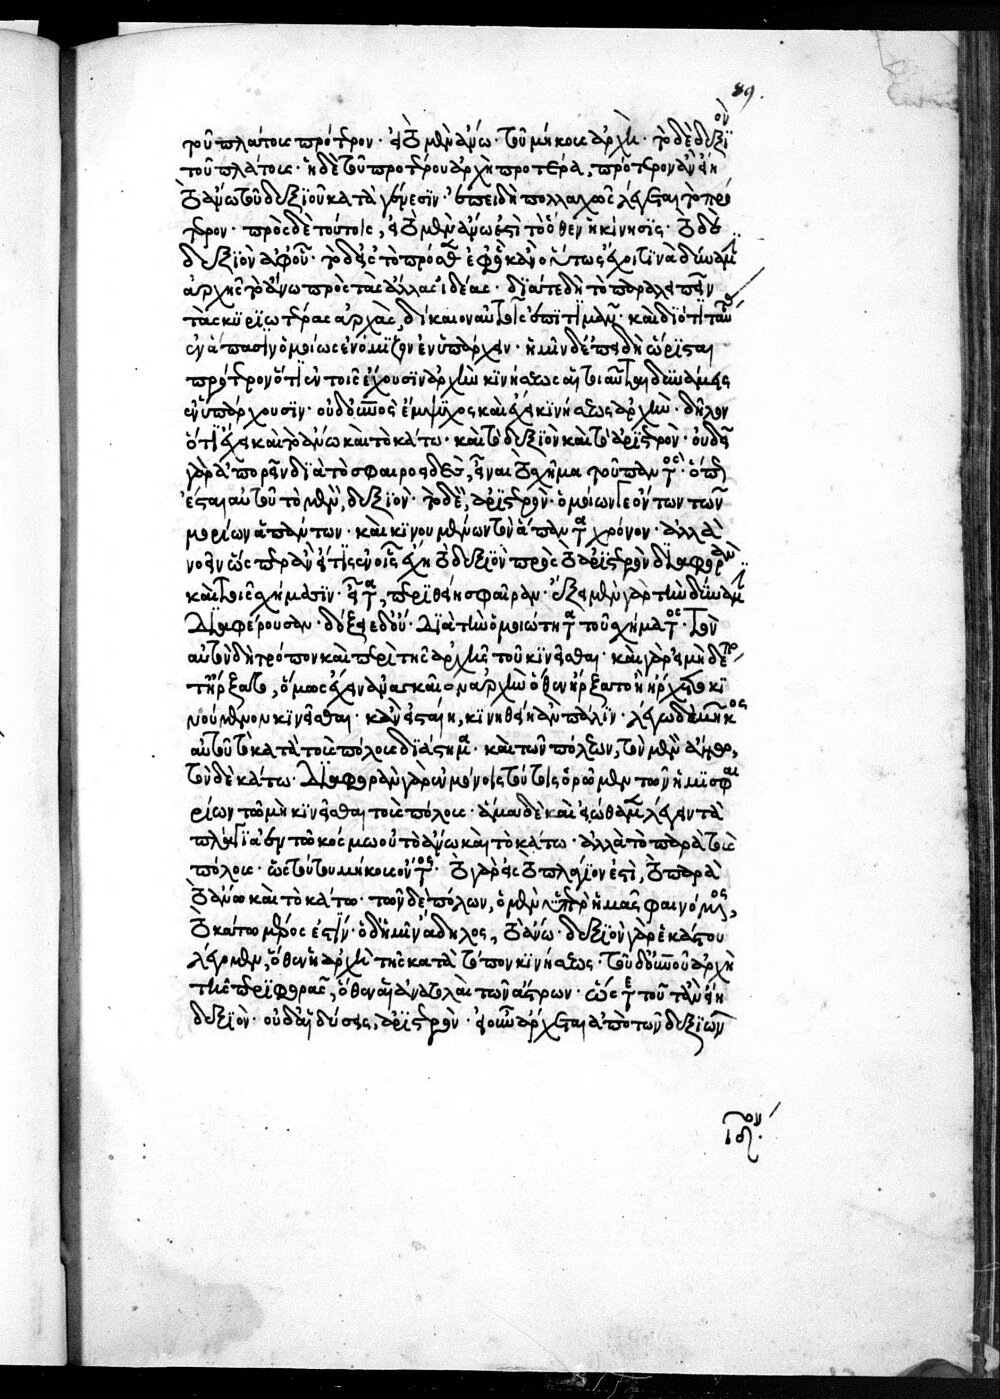 89.
τοῦ πλάτους πρότερον· ἔστι τὸ μὲν ἄνω τοῦ μήκους ἀρχὴ· τὸ δὲ δεξιὸν
τοῦ πλάτους· ἡ δὲ τοῦ προτέρου ἀρχὴ προτέρα, πρότερον ἂν εἴη
τὸ ἄνω τοῦ δεξιοῦ κατὰ γένεσιν· ἐπειδὴ πολλαχῶς λέγεται τὸ πρό
τερον· πρὸς δὲ τούτοις, εἰ τὸ μὲν ἄνω ἐστὶ τὸ ὅθεν ἡ κίνησις· τὸ δὲ
δεξιὸν ἀφ' οὗ· τὸ δ' εἰς τὸ πρόσθεν ἐφ' ὃ καὶ οὕτως ἔχοι τινὰ δύναμιν
ἀρχῆς τὸ ἄνω πρὸς τὰς ἄλλας ἰδέας· διά τε δὴ τὸ παραλείπειν
τὰς κυριωτέρας ἀρχὰς, δίκαιον αὐτοῖς ἐπιτιμᾶν· καὶ διότι ταύτας
ἐν ἅπασιν ὁμοίως ἐνόμιζον ἐνυπάρχειν· ἡμῖν δ' ἐπεὶ δὴ ὥρισται
πρότερον ὅτι ἐν τοῖς ἔχουσιν ἀρχὴν κινήσεως αἱ τοιαῦται δυνάμεις
ἐνυπάρχουσιν· ὁ δ' οὐρανὸς ἔμψυχος καὶ ἔχει κινήσεως ἀρχὴν· δῆλον
ὅτι ἔχει καὶ τὸ ἄνω καὶ τὸ κάτω· καὶ τὸ δεξιὸν καὶ τὸ ἀριστερὸν· οὐ δεῖ
γὰρ ἀπορεῖν διὰ τὸ σφαιροειδὲς εἶναι τὸ σχῆμα τοῦ παντὸς· ὅπως
ἔσται αὐτοῦ τὸ μὲν, δεξιὸν· τὸ δὲ, ἀριστερὸν· ὁμοίων τε ὄντων τῶν
μορίων ἁπάντων· καὶ κινουμένων τὸν ἅπαντα χρόνον· ἀλλὰ
νοεῖν ὥσπερ ἂν εἴ τις ἐν οἷς ἔχει τὸ δεξιὸν πρὸς τὸ ἀριστερὸν διαφορὰν
καὶ τοῖς σχήμασιν· εἶτα, περιθείη σφαῖραν· ἕξει μὲν γὰρ τὴν δύναμιν
διαφέρουσαν· δόξει δ' οὔ· διὰ τὴν ὁμοιότητα τοῦ σχήματος· τὸν
αὐτὸν δὴ τρόπον καὶ περὶ τῆς ἀρχῆς τοῦ κινεῖσθαι· καὶ γὰρ εἰ μηδέποτ'
ἤρξατο, ὅμως ἔχειν ἀναγκαῖον ἀρχὴν ὅθεν ἂν ἤρξατο εἰ ἤρχετο κι
νούμενον κινεῖσθαι· κἂν εἰ σταίη, κινηθείη ἂν πάλιν· λέγω δὲ μῆκος
αὐτοῦ τὸ κατὰ τοὺς πόλους διάστημα· καὶ τῶν πόλων, τὸν μὲν ἄνω,
τὸν δὲ κάτω· διαφορὰν γὰρ ἐν μόνοις τούτοις ὁρῶμεν τῶν ἡμισφαι
ρίων τῷ μὴ κινεῖσθαι τοὺς πόλους· ἅμα δὲ καὶ εἰώθαμεν λέγειν τὰ
πλάγια ἐν τῷ κόσμῳ οὐ τὸ ἄνω καὶ τὸ κάτω· ἀλλὰ τὸ παρὰ τοὺς
πόλους· ὡς τούτου μήκους ὄντος· τὸ γὰρ εἰς τὸ πλάγιον ἐστὶ, τὸ παρὰ
τὸ ἄνω καὶ τὸ κάτω· τῶν δὲ πόλων, ὁ μὲν ὑπὲρ ἡμᾶς φαινόμενος,
τὸ κάτω μέρος ἐστίν· ὁ δ' ἡμῖν ἄδηλος, τὸ ἄνω· δεξιὸν γὰρ ἑκάστου
λέγομεν, ὅθεν ἡ ἀρχὴ τῆς κατὰ τόπον κινήσεως· τοῦ δ' οὐρανοῦ ἀρχὴ
τῆς περιφορᾶς, ὅθεν αἱ ἀνατολαὶ τῶν ἄστρων· ὥστε τοῦτ' ἂν εἴη
δεξιὸν· οὗ δ' αἱ δύσεις, ἀριστερὸν· εἰ οὖν ἄρχεται ἀπὸ τῶν δεξιῶν